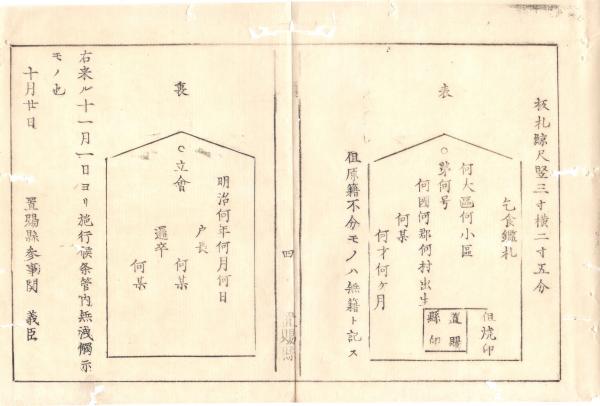 板札鯨尺竪三寸横二寸五分
乞食鑑札
表
何大區何小區
○第何号
何國何郡何村出生
何某
何才何ヶ月
但焼印
置賜
縣印
但原籍不分モノハ無籍ト記ス
四
置賜縣
裏
明治何年何月何日
戸長
何某
○立會
邏卒
何某
右来ル十一月一日ヨリ施行候条管内無洩觸示
モノ也
十月廿日
置賜縣参事関 義臣